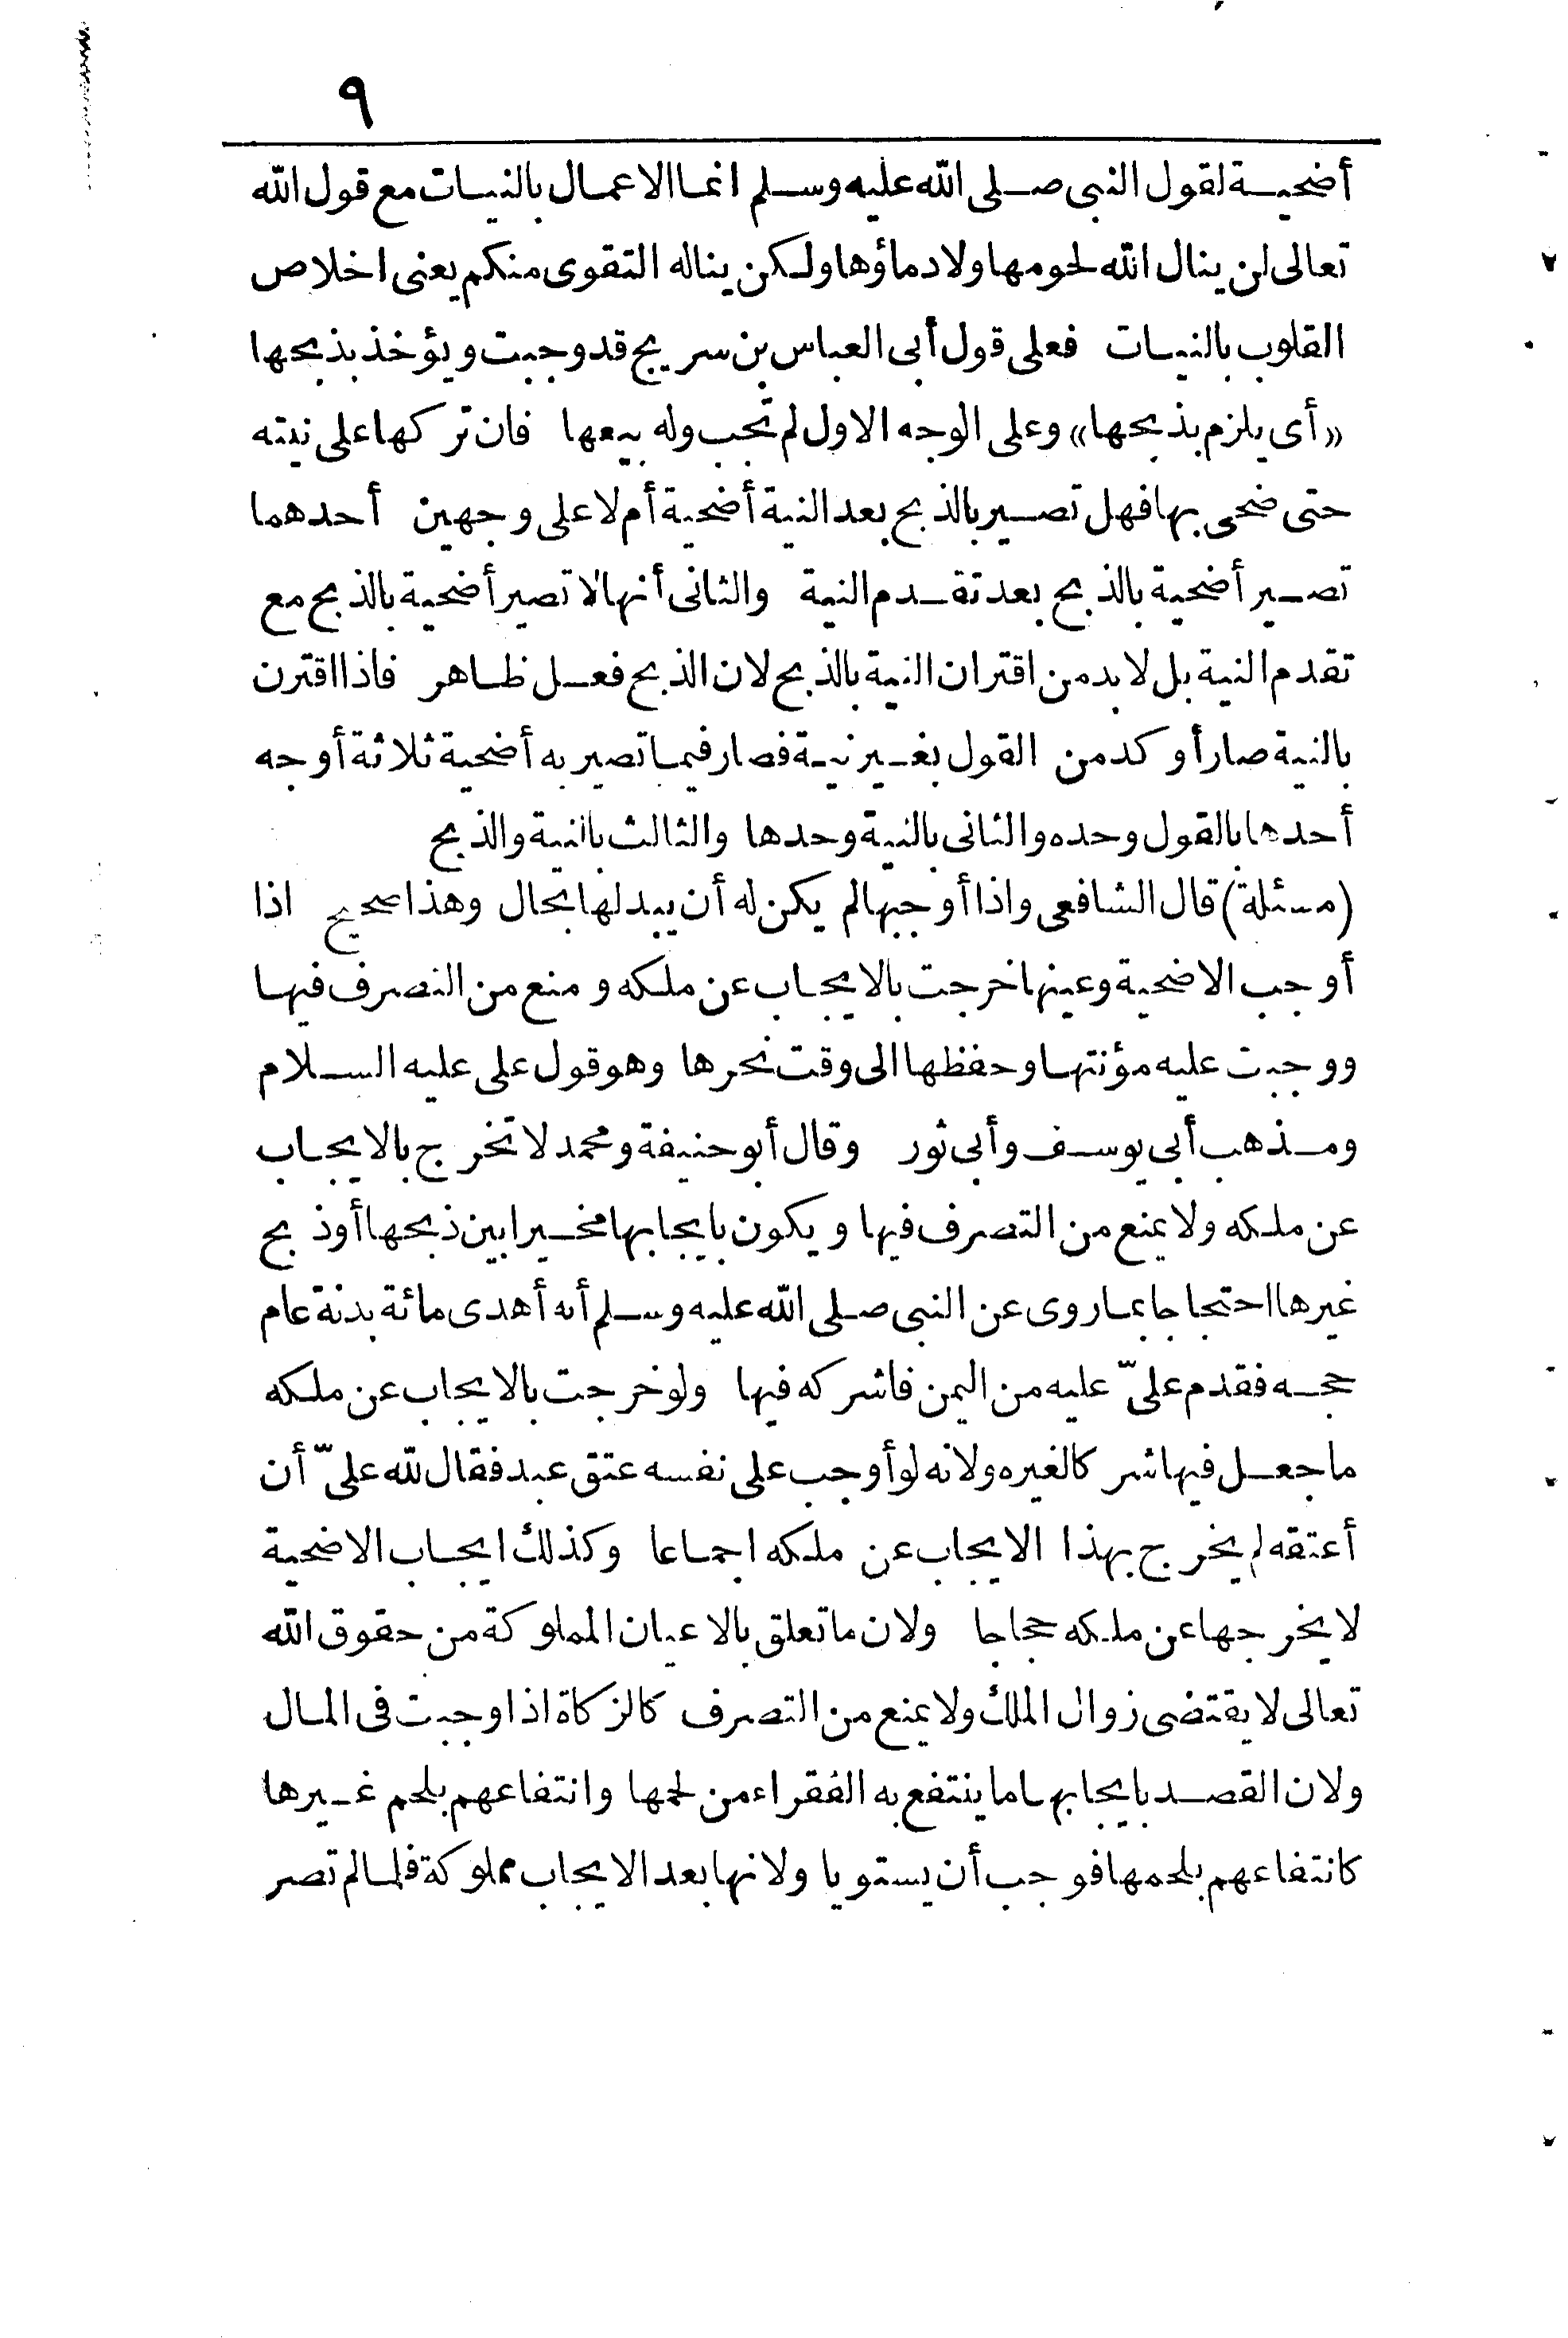 ٩
أضحية لقول النبى صلى الله عليه وسلم انما الاعمال بالنيات مع قول الله
تعالى لن ينال الله لحومها ولا دماؤها ولكن يناله التقوى منكم يعنى اخلاص
القلوب بالنيات فعلى قول أبى العباس بن سريج قد وجبت ويؤخذ بذبحها
«أى يلزم بذبحها» وعلى الوجه الاول لم تجب وله بيعها فان تركها على نيته
حتى ضحى بها فهل تصير بالذبح بعد النية أضحية أم لا على وجهين أحدهما
تصير أضحية بالذبح بعد تقدم النية والثانى أنها لا تصير أضحية بالذبح مع
تقدم النية بل لابد من اقتران النية بالذبح لان الذبح فعل ظاهر فاذا اقترن
بالنية صار أوكد من القول بغير نية فصار فيما تصير به أضحية ثلاثة أوجه
أحدها بالقول وحده والثانى بالنية وحدها والثالث بالنية والذبح
(مسئلة) قال الشافعى واذا أوجبها لم يكن له أن يبدلها بحال وهذا صحيح اذا
أوجب الاضحية وعينها خرجت بالايجاب عن ملكه ومنع من التصرف فيها
ووجبت عليه مؤنتها وحفظها الى وقت نحرها وهو قول على عليه السلام
ومذهب أبى يوسف وأبى ثور وقال أبو حنيفة ومحمد لا تخرج بالايجاب
عن ملكه ولا يمنع من التصرف فيها ويكون بايجابها مخيرا بين ذبحها أو ذبح
غيرها احتجاجا بما روى عن النبى صلى الله عليه وسلم أنه أهدى مائة بدنة عام
حجه فقدم علىّ عليه من اليمن فاشركه فيها ولو خرجت بالايجاب عن ملكه
ما جعل فيها شركا لغيره ولانه لو أوجب على نفسه عتق عبد فقال لله علىّ أن
أعتقه لم يخرج بهذا الايجاب عن ملكه اجماعا وكذلك ايجاب الاضحية
لا يخرجها عن ملكه حجاجا ولان ما تعلق بالاعيان المملوكة من حقوق الله
تعالى لا يقتضى زوال الملك ولا يمنع من التصرف كالزكاة اذا وجبت فى المال
ولان القصد بايجابها ما ينتفع به الفقراء من لحمها وانتفاعهم بلحم غيرها
كانتفاعهم بلحمها فوجب أن يستويا ولانها بعد الايجاب مملوكة فلما لم تصر